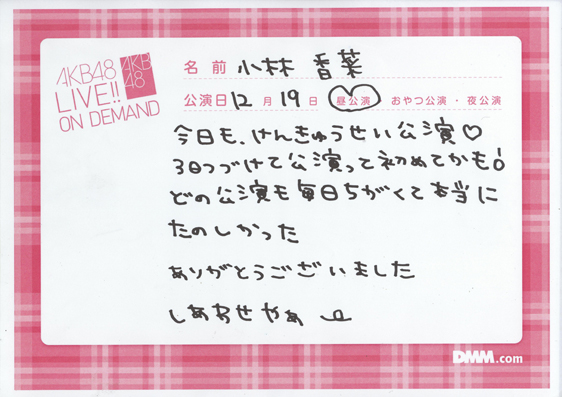 AKB48
LIVE!!
ON DEMAND
AKB
48
名前 小林 香菜
公演日 12 月 19 日 昼公演 ・ おやつ公演 ・ 夜公演
今日も、けんきゅうせい公演♡
3日つづけて公演って初めてかも!
どの公演も毎日ちがくて本当に
たのしかった
ありがとうございました
しあわせやぁ
DMM.com